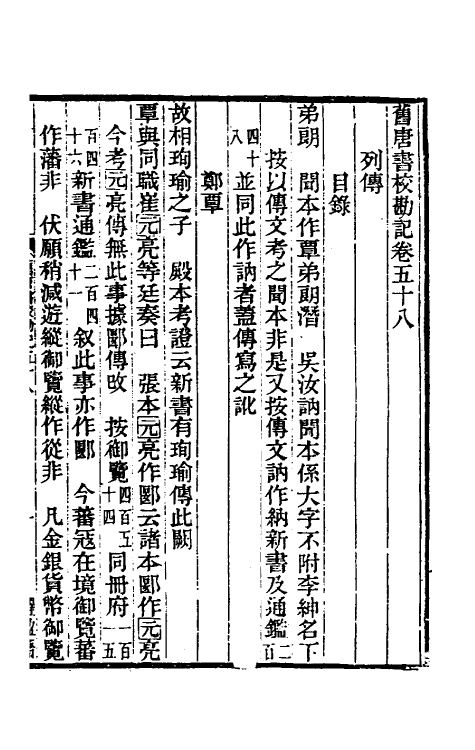 舊唐書校勘記卷五十八
列傳
目錄
弟朗　聞本作覃弟朗潛　吳汝訥聞本係大字不附李紳名下
按以傳文考之聞本非是又按傳文訥作納新書及通鑑二百
四十八並同此作訥者蓋傳寫之訛
鄭覃
故相珣瑜之子　殿本考證云新書有珣瑜傳此闕
覃與同職崔元亮等廷奏曰　張本元亮作郾云諸本郾作元亮
今考元亮傳無此事據郾傳改　按御覽四百五十四同冊府一百一五
百四十六新書通鑑二百四十一叙此事亦作郾　今蕃寇在境御覽蕃
作藩非　伏願稍減遊縱御覽縱作從非　凡金銀貨幣御覽